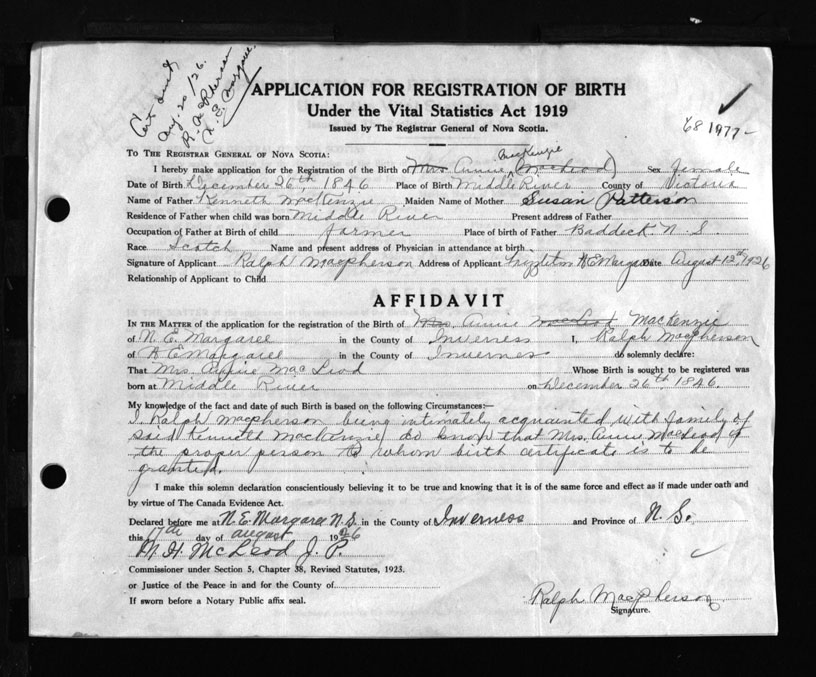 Cert sent
Aug. 20/26.
N. E. Margaree.
APPLICATION FOR REGISTRATION OF BIRTH
Under the Vital Statistics Act 1919
Issued by The Registrar General of Nova Scotia.
68 1977-
TO THE REGISTRAR GENERAL OF NOVA SCOTIA:
MacKenzie
I hereby make application for the Registration of the Birth of Mrs. Annie (MacLeod) Sex female
Date of Birth December 26th, 1846 Place of Birth Middle River County of Victoria
Name of Father Kenneth MacKenzie Maiden Name of Mother Susan Patterson
Residence of Father when child was born Middle River Present address of Father
Occupation of Father at Birth of child farmer Place of birth of Father Baddeck N. S.
Race Scotch Name and present address of Physician in attendance at birth
Signature of Applicant Ralph Macpherson Address of Applicant Frizzleton N E Margaree Date August 12th, 1926
Relationship of Applicant to Child
AFFIDAVIT
IN THE MATTER of the application for the registration of the Birth of Mrs. Annie MacLeod MacKenzie
of N. E. Margaree in the County of Inverness I, Ralph Macpherson
of N E Margaree in the County of Inverness do solemnly declare:
That Mrs. Annie MacLeod Whose Birth is sought to be registered was
born at Middle River on December 26th 1846.
My knowledge of the fact and date of such Birth is based on the following Circumstances:—
I Ralph Macpherson being intimately acquainted with family of
said Kenneth MacKenzie, do know that Mrs. Annie MacLeod is
the proper person to whom birth certificate is to be
granted.
I make this solemn declaration conscientiously believing it to be true and knowing that it is of the same force and effect as if made under oath and
by virtue of The Canada Evidence Act.
Declared before me at N. E. Margaree N. S. in the County of Inverness and Province of N. S.
this 17th day of august 1926
M. H. McLeod J. P.
Commissioner under Section 5, Chapter 38, Revised Statutes, 1923.
or Justice of the Peace in and for the County of
If sworn before a Notary Public affix seal.
Ralph MacPherson
Signature.